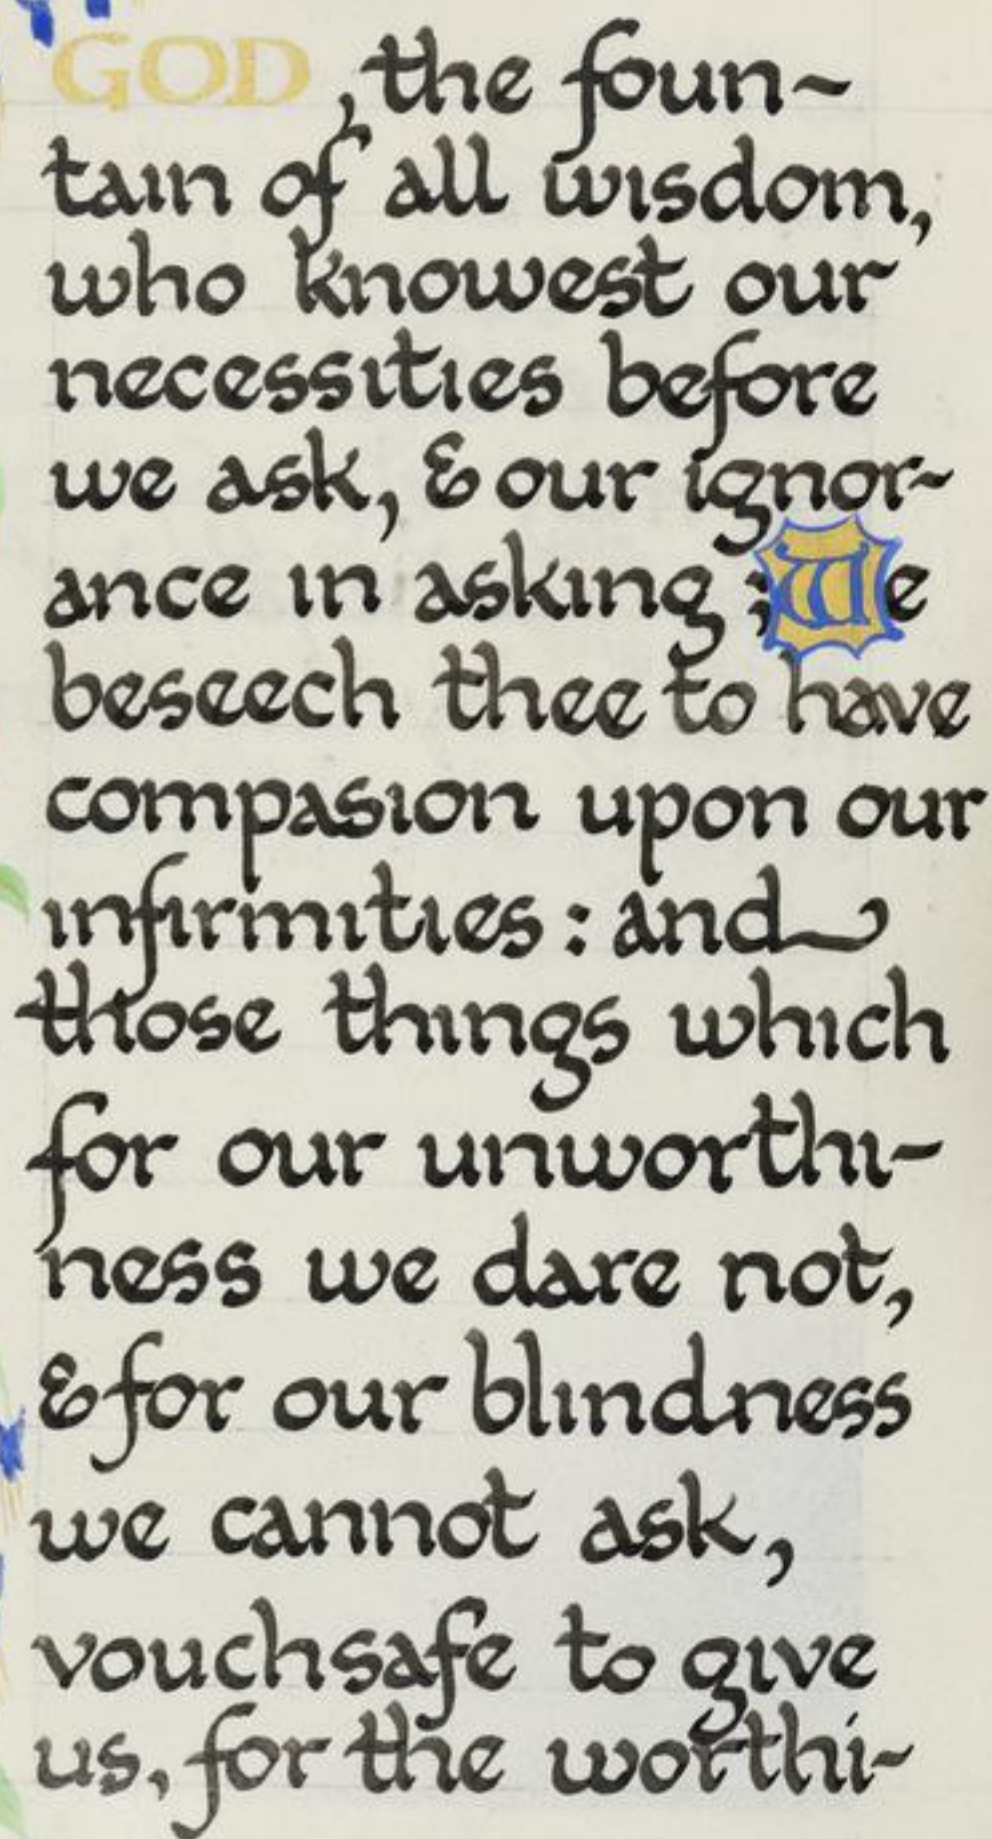 GOD, the foun-
tain of all wisdom,
who knowest our
necessities before
we ask, & our ignor-
ance in asking ; We
beseech thee to have
compasion upon our
infirmities : and
those things which
for our unworthi-
ness we dare not,
& for our blindness
we cannot ask,
vouchsafe to give
us, for the worthi-